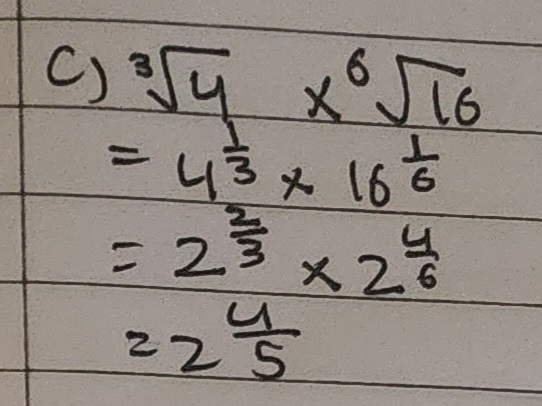 C) ³√4 × ⁶√16
= 4^(1/3) × 16^(1/6)
= 2^(2/3) × 2^(4/6)
= 2^(4/5)